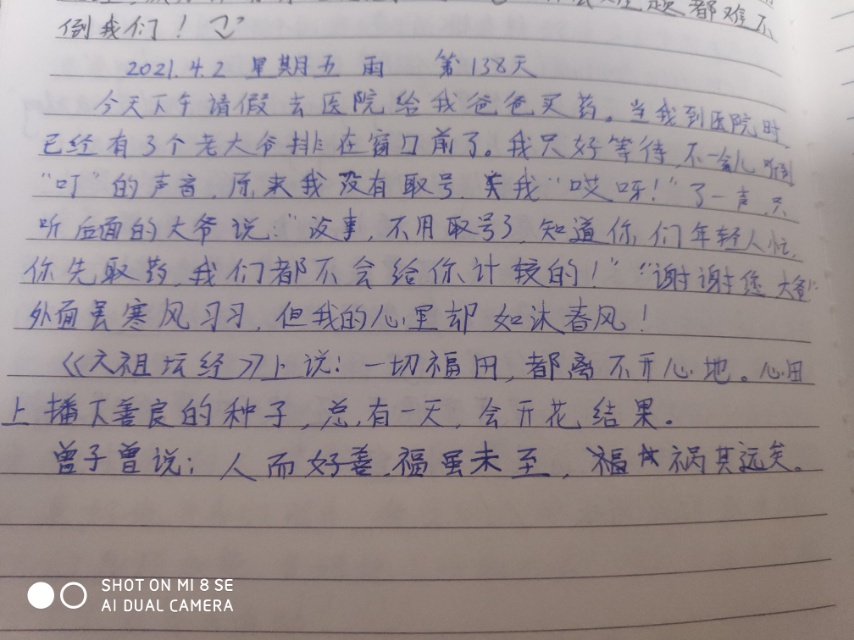 都难不
倒我们！
2021.4.2 星期五 雨 第138天
今天下午请假去医院给我爸爸买药。当我到医院时
已经有3个老大爷排在窗口前了。我只好等待,不一会儿听到
“叮”的声音,原来我没有取号,我“哎呀！”了一声,只
听后面的大爷说:“没事,不用取号了,知道你们年轻人忙,
你先取药,我们都不会给你计较的！”“谢谢您大爷”
外面虽寒风习习,但我的心里却如沐春风！
《六祖坛经》上说:一切福田,都离不开心地。心田
上播下善良的种子,总有一天,会开花结果。
曾子曾说:人而好善,福虽未至,祸其远矣。
SHOT ON MI 8 SE
AI DUAL CAMERA